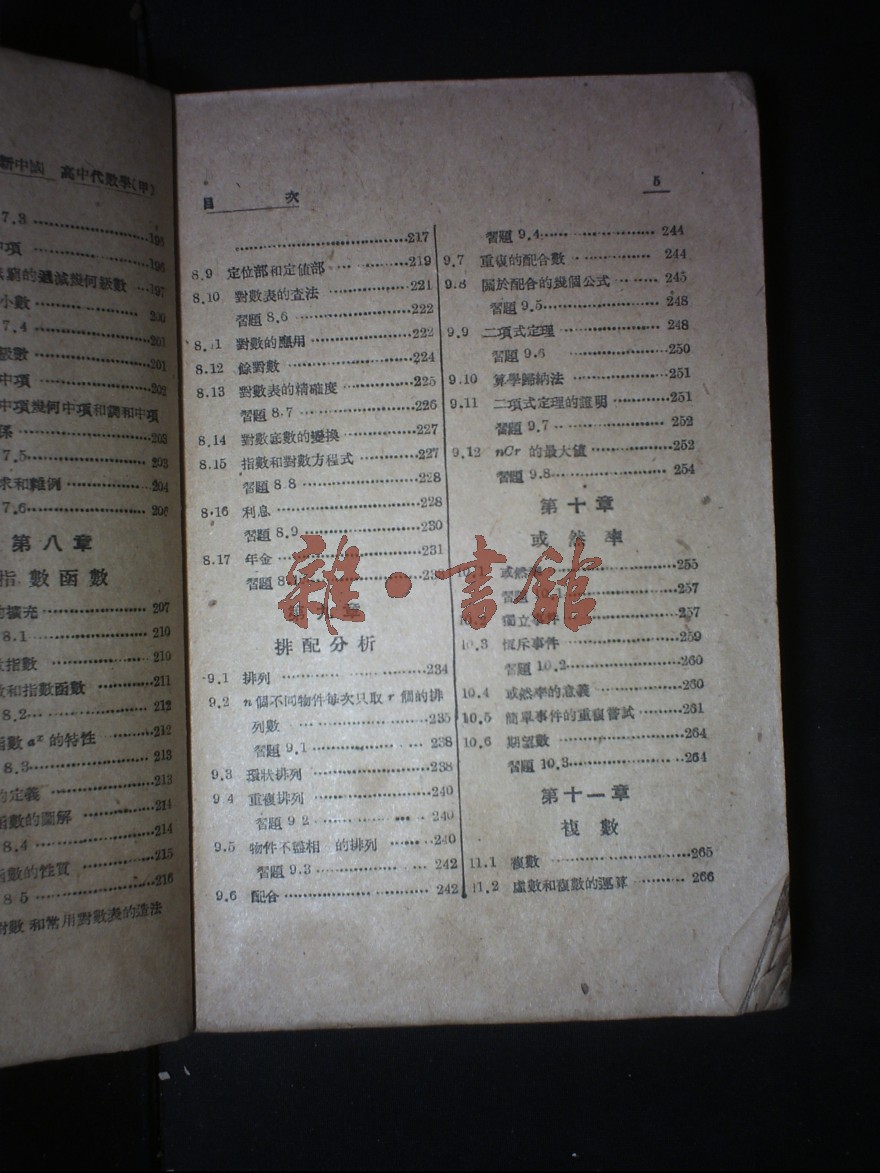 新中国 高中代數學(甲)
7.3 ……………… 195
中項 ……………… 196
窮的遞減幾何級數 …197
小數 ……………… 200
7.4 ……………… 201
級數 ……………… 201
中項 ……………… 202
中項幾何中項和調和中項
係 ……………… 203
7.5 ……………… 203
求和雜例 ……………… 204
7.6 ……………… 206
第八章
指數函數
的擴充 ……………… 207
8.1 ……………… 210
指數 ……………… 210
數和指數函數 ……………… 211
8.2 ……………… 212
函數 aˣ 的特性 ……………… 212
8.3 ……………… 213
的定義 ……………… 213
函數的圖解 ……………… 214
8.4 ……………… 214
函數的性質 ……………… 215
8.5 ……………… 216
對數和常用對數表的造法
目 次
5
……………… 217
8.9 定位部和定值部 ……………… 219
8.10 對數表的查法 ……………… 221
習題 8.6 ……………… 222
8.11 對數的應用 ……………… 222
8.12 餘對數 ……………… 224
8.13 對數表的精確度 ……………… 225
習題 8.7 ……………… 226
8.14 對數底數的變換 ……………… 227
8.15 指數和對數方程式 ……………… 227
習題 8.8 ……………… 228
8.16 利息 ……………… 228
習題 8.9 ……………… 230
8.17 年金 ……………… 231
習題
第九章
排配分析
9.1 排列 ……………… 234
9.2 n 個不同物件每次只取 r 個的排
列數 ……………… 235
習題 9.1 ……………… 238
9.3 環狀排列 ……………… 238
9.4 重複排列 ……………… 240
習題 9.2 ……………… 240
9.5 物件不盡相 的排列 ……………… 240
習題 9.3 ……………… 242
9.6 配合 ……………… 242
習題 9.4 ……………… 244
9.7 重復的配合數 ……………… 244
9.8 關於配合的幾個公式 ……………… 245
習題 9.5 ……………… 248
9.9 二項式定理 ……………… 248
習題 9.6 ……………… 250
9.10 算學歸納法 ……………… 251
9.11 二項式定理的證明 ……………… 251
習題 9.7 ……………… 252
9.12 nCr 的最大値 ……………… 252
習題 9.8 ……………… 254
第十章
或然率
10.1 或然率 ……………… 255
習題 10.1 ……………… 257
10.2 獨立事件 ……………… 257
10.3 恆斥事件 ……………… 259
習題 10.2 ……………… 260
10.4 或然率的意義 ……………… 260
10.5 簡單事件的重複嘗試 ……………… 261
10.6 期望數 ……………… 264
習題 10.3 ……………… 264
第十一章
複數
11.1 複數 ……………… 265
11.2 虛數和複數的運算 ……………… 266
雜·書館